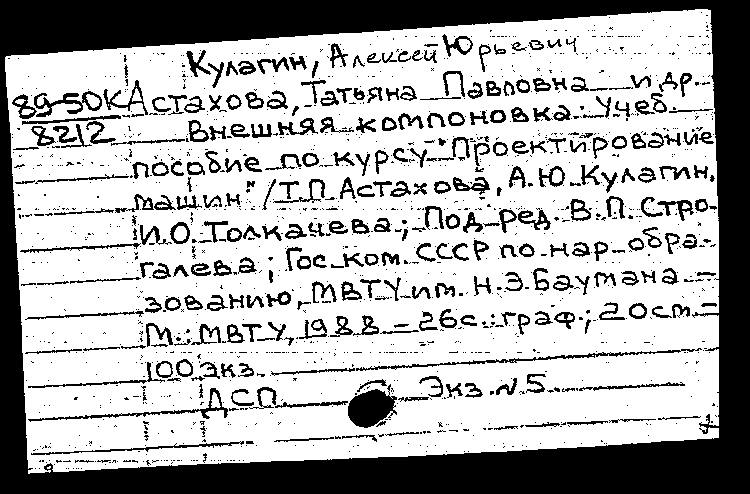 Кулагин, Алексей Юрьевич
89-50К Астахова, Татьяна Павловна и др.
8212 Внешняя компоновка: Учеб.
пособие по курсу "Проектирование
машин"/Т.П. Астахова, А.Ю. Кулагин,
И.О. Толкачева; Под ред. В.П. Стро-
галева; Гос. ком. СССР по нар. обра-
зованию, МВТУ им. Н.Э. Баумана. –
М.: МВТУ, 1988. – 26с.: граф.; 20 см. –
100 экз.
ДСП. Экз. N 5.